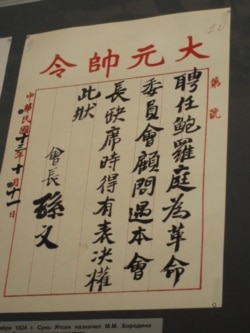 大元帥令
第 號
聘任鮑羅庭為革命
委員會顧問遇本會
長缺席時得有表决權
此狀
會長 孫文
中華民國十三年十月十一日